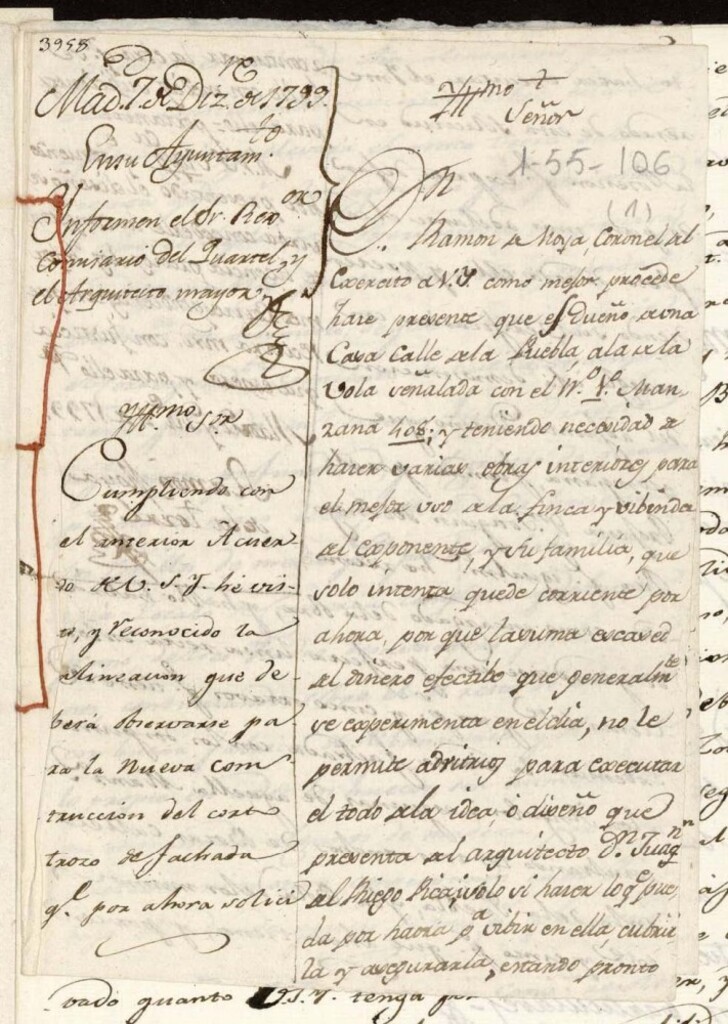 3958
Mad. 7 de Diz.re de 1799.
En su Ayuntam.to
Informen el Sr. Rexor
Comisario del Quartel, y
el Arquitecto mayor
Yllmo Sor
Cumpliendo con
el anterior Acuer-
do de V. S. Y. hé vis-
to, y reconocido la
alineacion que de-
berá observarse pa
ra la nueva cons-
truccion del corto
trozo de fachada
q.e por ahora solici
Yllmo
Señor
1-55-106
(1)
Dn
Ramon de Moya, Coronel del
Exercito a V.Y. como mejor procede
hace presente que es Dueño de una
Casa Calle de la Puebla, a la de la
Vola señalada con el N.o 1.o Man-
zana 408; y teniendo necesidad de
hacer varias obras interiores para
el mejor uso de la finca y vibienda
del Exponente, y su familia, que
solo intenta quede corriente por
ahora, por que la suma escased
del dinero efectibo que generalmte
se experimenta en el dia, no le
permite advitrios para executar
el todo de la idea, ó diseño que
presenta del arquitecto Dn. Juaqn
del Riego Pica, solo si hacer lo qe pue
da por haora pa vibir en ella, cubrir
la y asegurarla, estando pronto
vado quanto V.S.Y. tenga por